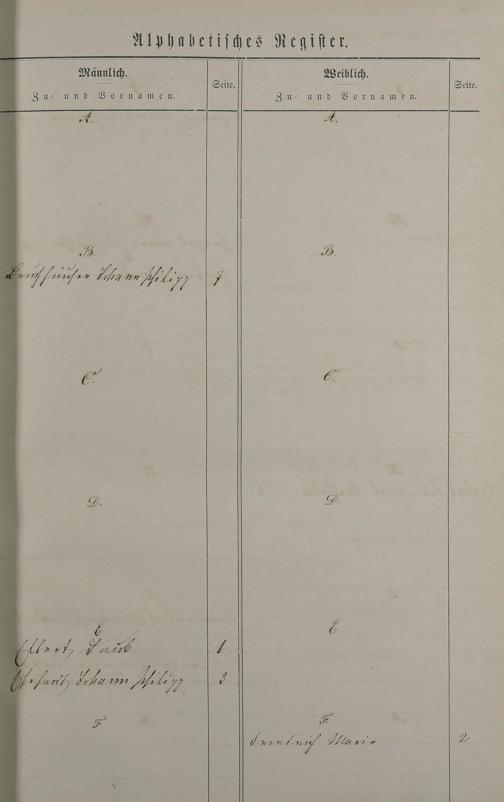 Alphabetisches Register.
Männlich.
Zu- und Vornamen.
Seite.
Weiblich.
Zu- und Vornamen.
Seite.
A.
A.
B.
B.
Johann Philipp 7
C.
C.
D.
D.
E
E
Elbert, 1
Johann Philipp 3
F.
F.
Friedrich Marie 2